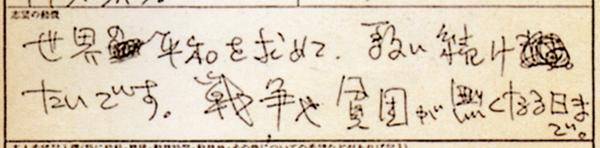 志望の動機
世界平和を求めて、歌い続け
たいです。戦争や貧困が無くなる日ま
で。